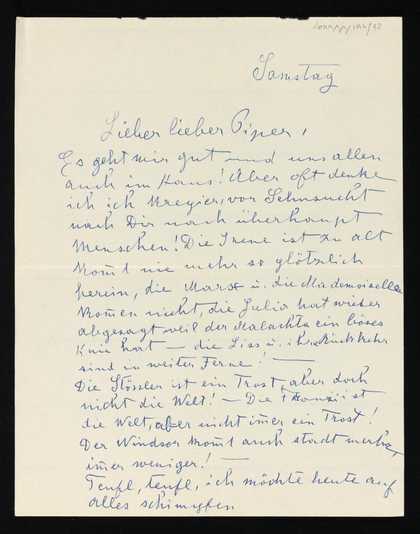 Samstag
Lieber lieber Piper,
Es geht mir gut und uns allen
auch im Haus! Aber oft denke
ich ich krepier, vor Sehnsucht
nach Dir nach überhaupt
Menschen! Die Irene ist zu alt
kom̄t nie mehr so plötzlich
herein, die Marx u. die Mademoiselle
kom̄en nicht, die Julia hat wieder
abgesagt weil der Malachta ein böses
Knie hat – die Liss u. ihre Rückkehr
sind in weiter Ferne! –
Die Stössler ist ein Trost, aber doch
nicht die Welt! – Die ist
die Welt, aber nicht im̄er ein Trost!
Der Windsor kom̄t auch
im̄er weniger! –
Teufl, teufl, ich möchte heute auf
alles schimpfen